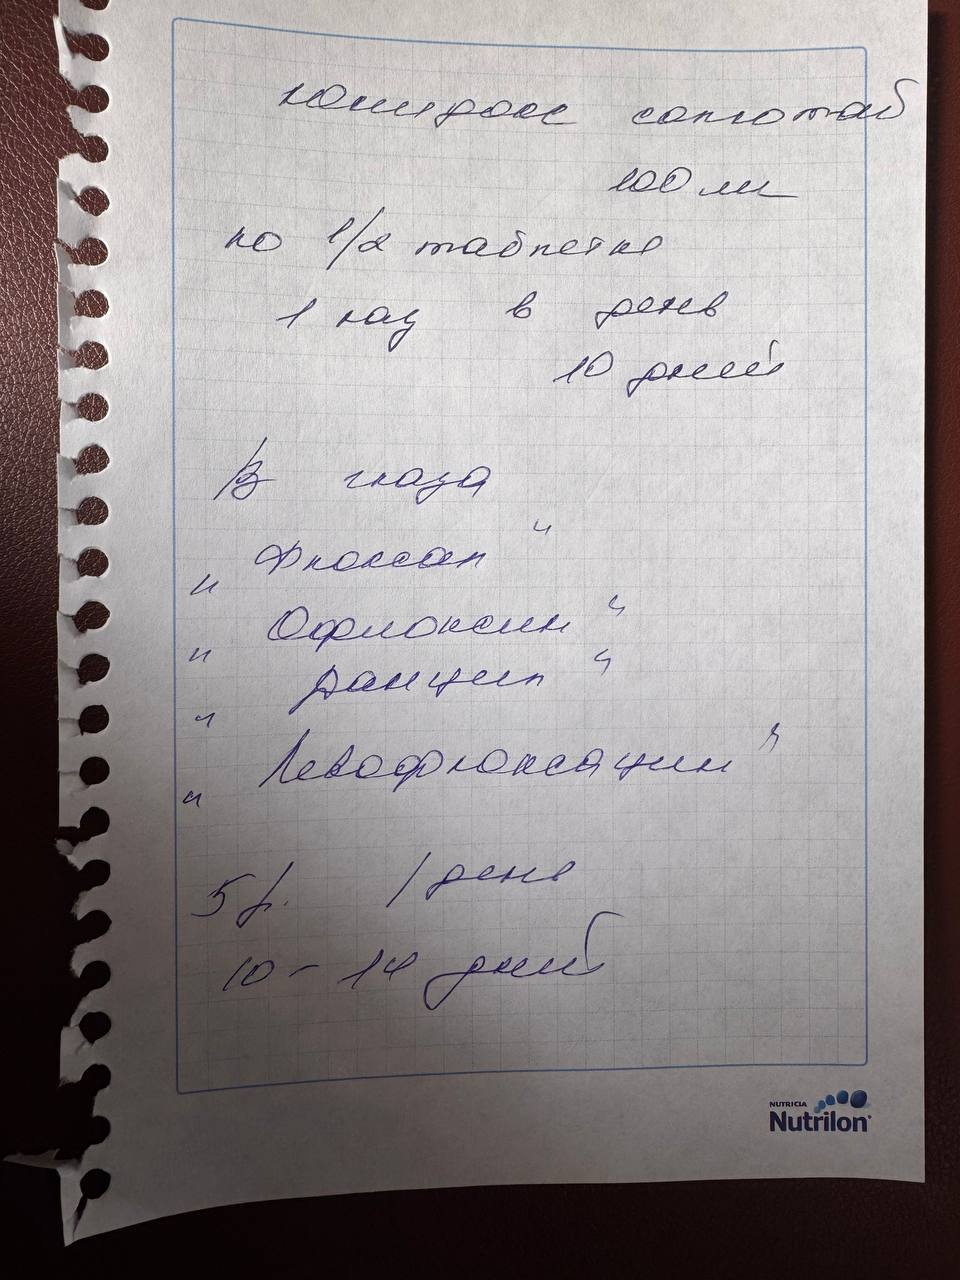 Юнидокс солютаб
100 мг
по 1/2 таблетке
1 раз в день
10 дней
В глаза
„Флоксал“
„Офлоксин“
„Данцил“
„Левофлоксацин“
5 р. / день
10 - 14 дней
NUTRICIA
Nutrilon